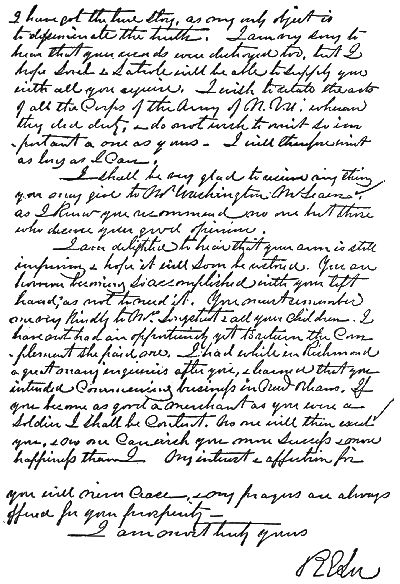 I have got the true story, as my only object is
to disseminate the truth. I am very sorry to
hear that your records were destroyed too, but I
hope Sorrel & Latrobe will be able to supply you
with all you require. I wish to relate the acts
of all the Corps of the Army of N. Va. wherever
they did duty, & do not wish to omit so im
-portant a one as yours - I will therefore wait
as long as I can.
I shall be very glad to receive anything
you may give to Mr Washington McLean
as I know you recommend no one but those
who deserve your good opinion.
I am delighted to hear that your arm is still
improving & hope it will soon be restored. You are
however becoming so accomplished with your left
hand, as not to need it. You must remember
me very kindly to Mrs Longstreet & all your children. I
have not had an opportunity yet to return the Com
-pliment she paid me. I had while in Richmond
a great many inquiries after you, & learned that you
intended Commencing business in New Orleans. If
you become as good a merchant as you were a
Soldier I shall be Content. No one will then excel
you, & no one Can wish you more success & more
happiness than I. My interest & affection for
you will never Cease, & my prayers are always
offered for your prosperity -
I am most truly yours
R E Lee